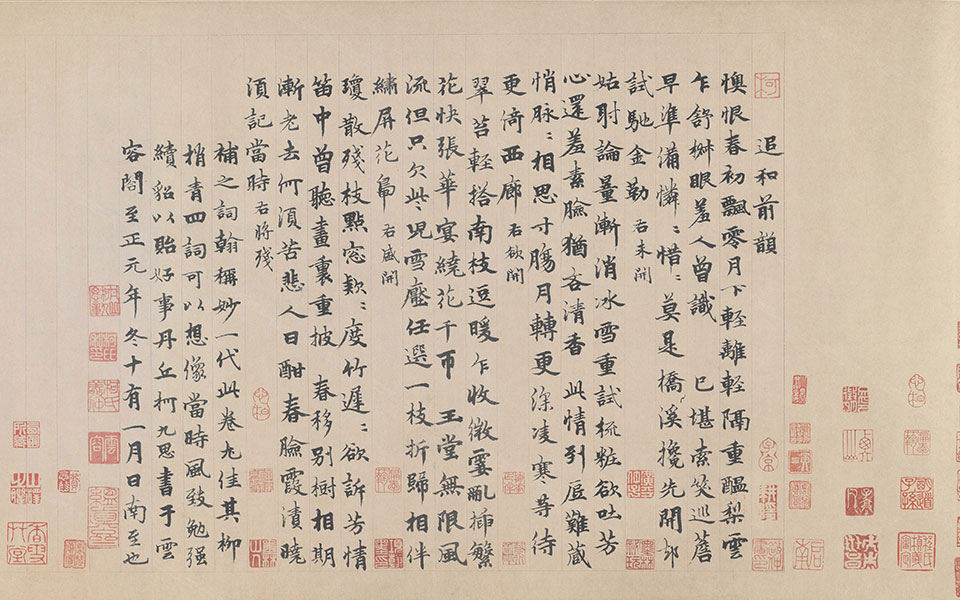 追和前韻
懊恨春初飄零月下輕離輕隔重醞梨雲
乍舒椒眼羞人曾識　已堪索笑巡簷
早準備憐〻惜〻莫是橋溪攙先開卻
試馳金勒　右未開
姑射論量漸消冰雪重試梳粧欲吐芳
心還羞素臉猶吝清香　此情到底難藏
悄脉〻相思寸腸月轉更深凌寒等待
更倚西廊　右欲開
翠苔輕搭南枝逗暖乍收微霎亂插繁
花快張華宴繞花千帀　玉堂無限風
流但只欠些兒雪壓任選一枝折歸相伴
繡屏花鳥　右盛開
瓊散殘枝點窓欵〻度竹遲〻欲訴芳情
笛中曾聽畫裏重披　春移別樹相期
漸老去何須苦悲人日酣春臉霞漬曉
須記當時　右將殘
補之詞翰稱妙一代此卷尤佳其柳
梢青四詞可以想像當時風致勉强
續貂以貽好事丹丘柯九思書于雲
容閣至正元年冬十有一月日南至也